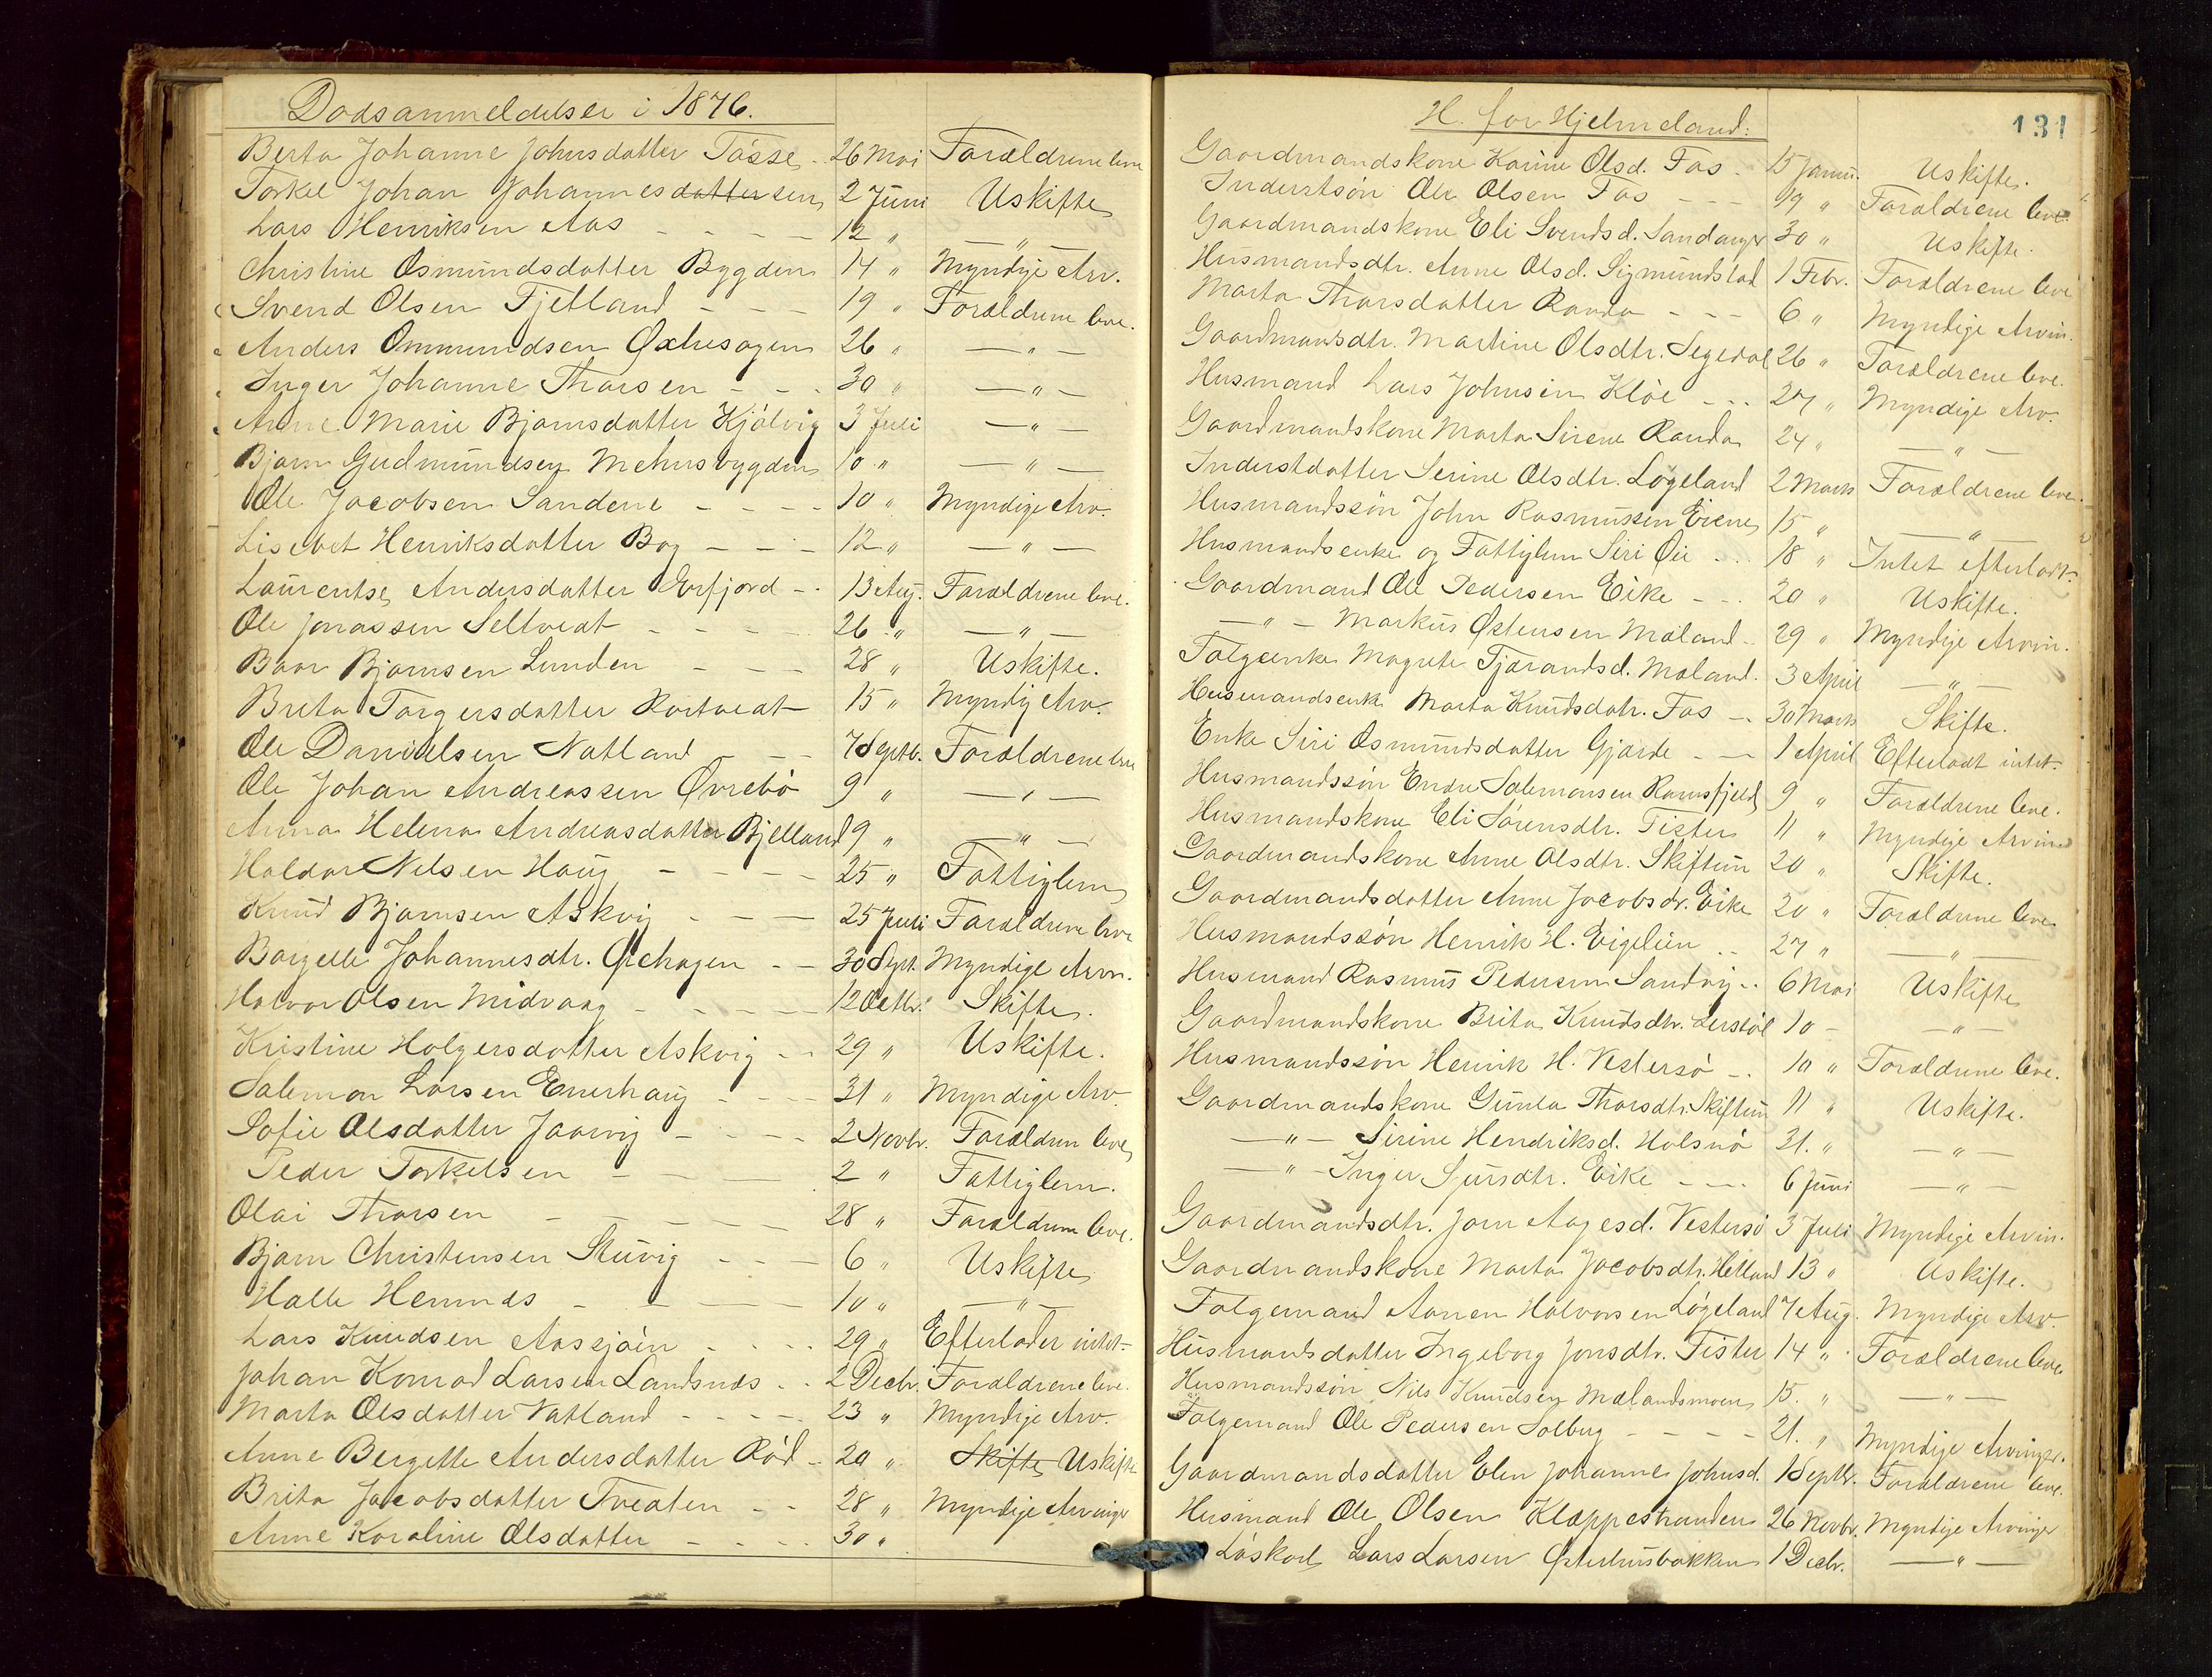 Dødsanmeldelser i 1876.
Berta Johanne Johnsdatter Tøsse - 26 Mai Forældrene leve
Torkel Johan Johannesdatter sen 2 Juni Uskifte
Lars Henriksen Aas - - - - 12 " — " —
Christine Osmundsdatter Bygden 14 " Myndige Arv.
Svend Olsen Fjelland - - - 19 " Forældrene leve.
Anders Ommundsen Øxhesagen 26 " — " —
Inger Johanne Thorsen - - - 30 " — " —
Anne Marie Bjørnsdatter Kjølvig 3 Juli — " —
Bjørn Gudmundsen Mehusbygden 10 " — " —
Ole Jacobsen Sandene - - - - 10 " Myndige Arv.
Lisebet Henriksdatter Bog - - - 12 " — " —
Laurentse Andersdatter Erfjord - - 13 Aug. Forældrene leve.
Ole Jonassen Seltvedt - - - 26 " — " —
Baar Bjørnsen Lunden - - - 28 " Uskifte.
Brita Torgersdatter Rortvedt 15 " Myndig Arv.
Ole Danielsen Natland - - - 7 Septb. Forældrene leve
Ole Johan Andreassen Øvrebø 9 " — " —
Anna Helena Andreasdatter Bjelland 9 " — " —
Haldor Nelsen Haug - - - - 25 " Fattiglem
Knud Bjørnsen Askvig - - - 25 Juli Forældrene leve
Borgelle Johannesdtr. Øchagen - - 30 Sept. Myndige Arvn.
Halvor Olsen Midvaag - - - - 12 Octbr. Skifte.
Kristine Holgersdatter Askvig - - 29 " Uskifte.
Salemon Larsen Enerhaug - - - 31 " Myndige Arv.
Sofie Olsdatter Jaarvig - - - - 2 Novbr. Forældren leve
Peder Torkelsen - - - 2 " Fattiglem.
Olai Thorsen - - - - - 28 " Forældren leve.
Bjørn Christensen Stuvig - - - 6 " Uskifte
Halle Hemnes - - - - 10 " — " —
Lars Knudsen Aassjøen - - - - 29 " Efterlader intet
Johan Konrad Larsen Landsnæs - - 2 Decbr. Forældrene leve.
Marta Olsdatter Vatland - - - - 23 " Myndige Arv.
Anne Bergitte Andersdatter Rød - 20 " Skifte Uskifte
Brita Jacobsdatter Tveaten - - 28 " Myndige Arvinger
Anne Karoline Olsdatter - - - - 30 "
H. for Hjelmeland:
131
Gaardmandskone Karine Olsd. Fos - 15 Janu. Uskifte.
Inderstsøn Ole Olsen Fos - - - 19 " Forældrene leve.
Gaardmandskone Eli Svendsd. Sandanger 30 " Uskifte.
Husmandsdtr. Anne Olsd. Sigmundstad 1 Febr. Forældrene leve
Marta Thorsdatter Randa - - - 6 " Myndige Arvin.
Gaardmandsdtr. Martine Olsdtr. Segedal 26 " Forældrene leve.
Husmand Lars Johnsen Kløe - - - 27 " Myndige Arv.
Gaardmandskone Marta Sirene Randa 24 " — " —
Inderstdatter Serine Olsdtr. Løgeland 2 Marts Forældrene leve.
Husmandssøn John Rasmussen Eiene 15 " — " —
Husmandsenke og Fattiglem Siri Øie - - - 18 " Intet efterladt.
Gaardmand Ole Pedersen Eike - - - 20 " Uskifte.
— " — Markus Østensen Mæland - 29 " Myndige Arvin.
Følgeenke Magrete Tjærandsd. Mæland. 3 April — " —
Husmandsenke Marta Knudsdatr. Fos - 30 Marts Skifte.
Enke Siri Osmundsdatter Gjærde - - 1 April Efterladt intet.
Husmandssøn Endre Salemonsen Ramsfjeld 9 " Forældrene leve.
Husmandskone Eli Sørensdtr. Fister 11 " Myndige Arvin
Gaardmandskone Anne Olsdtr. Skiftun 20 " Skifte.
Gaardmandsdatter Anne Jacobsdr. Eike 20 " Forældrene leve
Husmandssøn Henrik H. Eigelien - - 27 " — " —
Husmand Rasmus Pedersen Sandvig - - 6 Mai Uskifte
Gaardmandskone Brita Knudsdtr. Lerstøl 10 - — " —
Husmandssøn Henrik H. Vestersø - - 10 " Forældrene leve.
Gaardmandskone Gunla Thorsdtr. Skiftun 11 " Uskifte.
— " — Sirine Hendriksd. Holsnø 31. " — " —
— " — Inger Sjursdtr. Eike - - - 6 Juni — " —
Gaardmandsdtr. Jorn Aagesd. Vestersø 3 Juli Myndige Arvin.
Gaardmandskone Marta Jacobsdtr. Helland 13 " Uskifte.
Følgemand Aanen Halvorsen Løgeland 7 Aug. Myndige Arv.
Husmandsdatter Ingeborg Jonsdtr. Fister 14 " Forældrene leve
Husmandssøn Nils Knudsen Mælandsmoen 15. " — " —
Følgemand Ole Pedersen Solberg - - - - 21. " Myndige Arvinger.
Gaardmandsdatter Elen Johanne Johnsd. 1 Septbr. Forældrene leve.
Husmand Ole Olsen Kleppestranden 26 Novbr. Myndige Arvinger
Løskarl Lars Larsen Østerhusbakken 1 Decbr. — " —